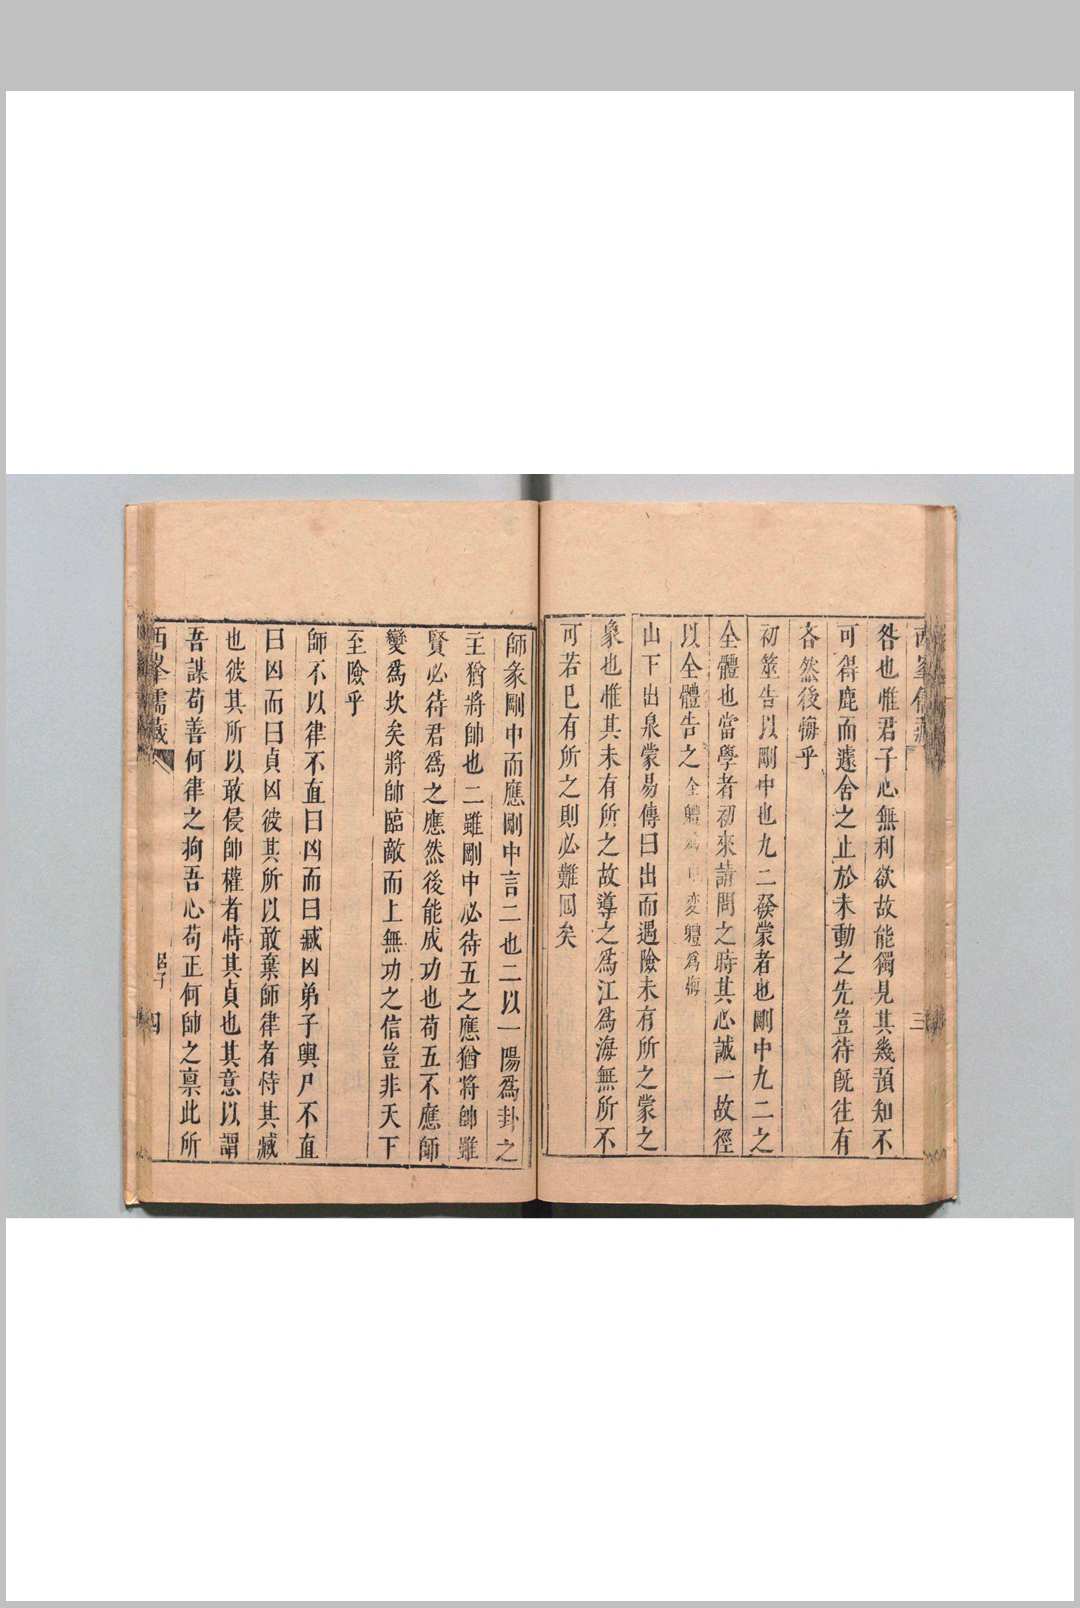 咎也惟君子心無利欲故能獨見其幾預知不
可得鹿而遽舍之止於未動之先豈待旣往有
吝然後悔乎
初筮告以剛中也九二發蒙者也剛中九二之
全體也當學者初來請問之時其心誠一故徑
以全體告之全體為 変體為悔
山下出泉蒙易傳曰出而遇險未有所之蒙之
象也惟其未有所之故導之爲江爲海無所不
可若已有所之則必難囘矣
師彖剛中而應剛中言二也二以一陽爲卦之
主猶將帥也二雖剛中必待五之應猶將帥雖
賢必待君爲之應然後能成功也苟五不應師
變爲坎矣將帥臨敵而上無功之信豈非天下
至險乎
師不以律不直曰凶而曰臧凶弟子輿尸不直
曰凶而曰貞凶彼其所以敢棄師律者恃其臧
也彼其所以敢侵帥權者恃其貞也其意以謂
吾謀苟善何律之拘吾心苟正何帥之禀此所
西峯儒藏
四